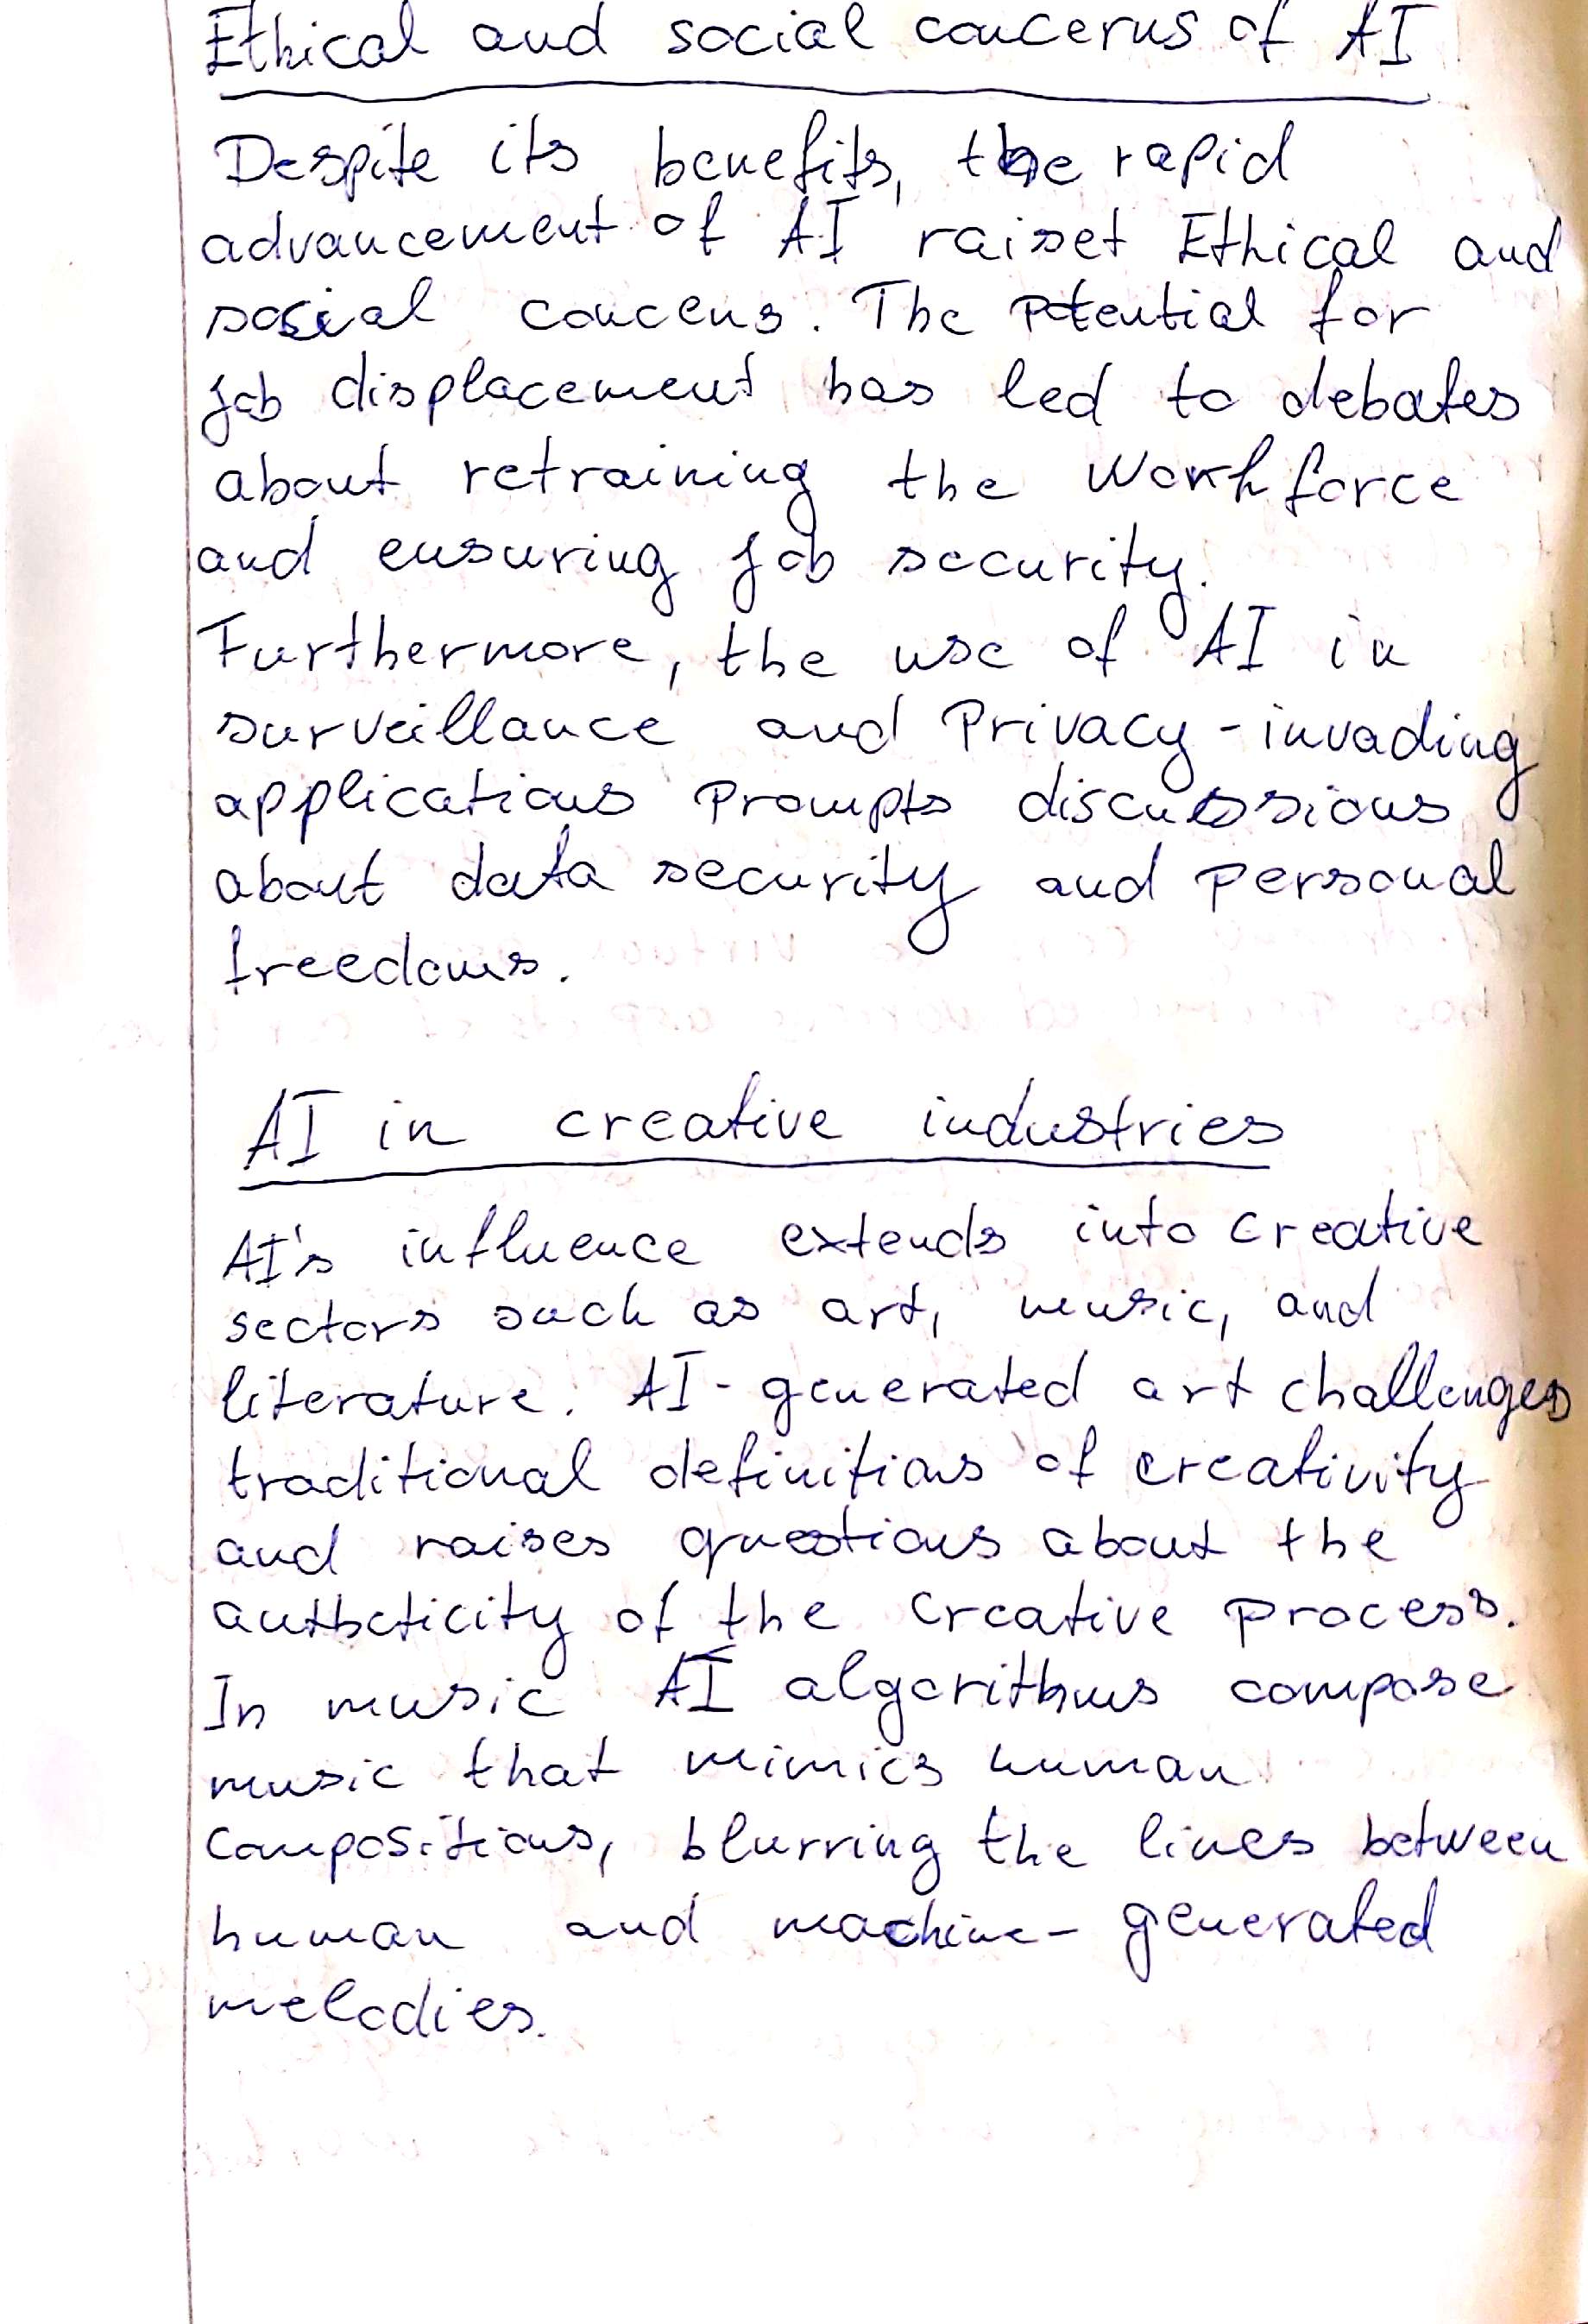 Ethical and social concerns of AI
Despite its benefits, the rapid
advancement of AI raiset Ethical and
social concens. The Potential for
job displacement has led to debates
about retraining the Workforce
and ensuring job security.
Furthermore, the use of AI in
surveillance and Privacy-invading
applications Prompts discussions
about data security and Personal
freedoms.
AI in creative industries
AI's influence extends into creative
sectors such as art, music, and
literature. AI-generated art challenges
traditional definitions of creativity
and raises questions about the
autheticity of the creative process.
In music AI algorithms compose
music that mimics human
compositions, blurring the lines between
human and machine-generated
melodies.